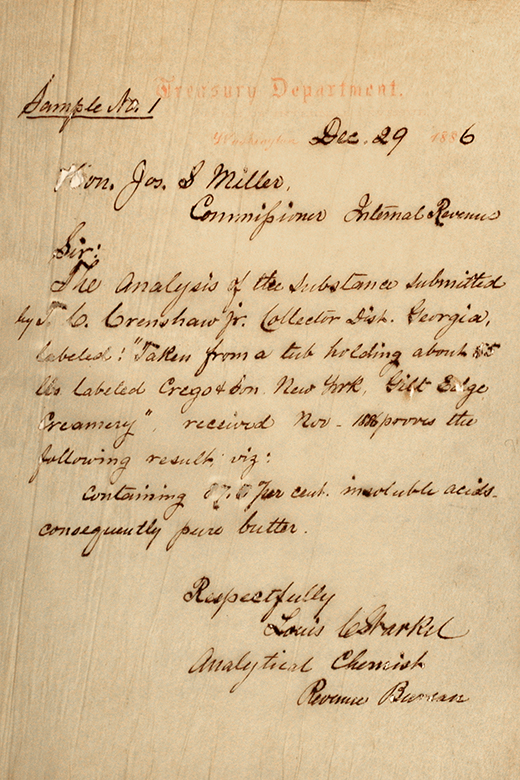 Treasury Department.
Sample No. 1
Washington Dec. 29 1886
Hon. Jos. S Miller,
Commissioner Internal Revenue
Sir:
The Analysis of the substance submitted
by T. C. Crenshaw Jr. Collector Dist. Georgia,
labeled: "Taken from a tub holding about
lbs labeled Crego & Son New York, Gilt Edge
Creamery", received Nov - 1886 proves the
following result, viz:
Containing per cent. insoluble acids-
consequently pure butter.
Respectfully
Louis
Analytical Chemist
Revenue Bureau